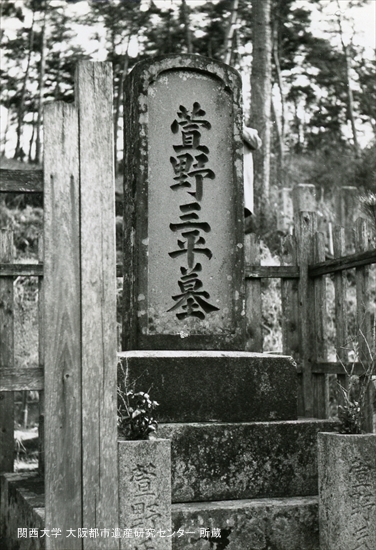 萱野三平墓
萱野
萱野
関西大学 大阪都市遺産研究センター 所蔵